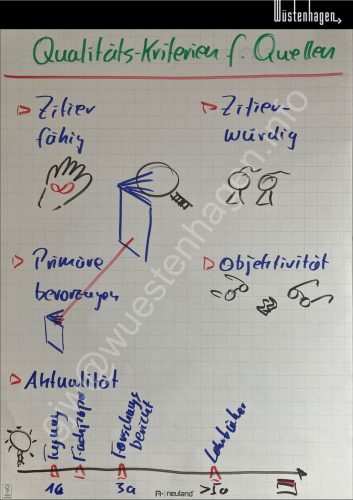 Wüstenhagen
Qualitäts-Kriterien f. Quellen
Zitier
fähig
Zitier-
würdig
Primäre
bevorzugen
Objektivität
Aktualität
Tagung
Fachpaper
Forschungs
bericht
Lehrbücher
3a
neuland
@wuestenhagen.info